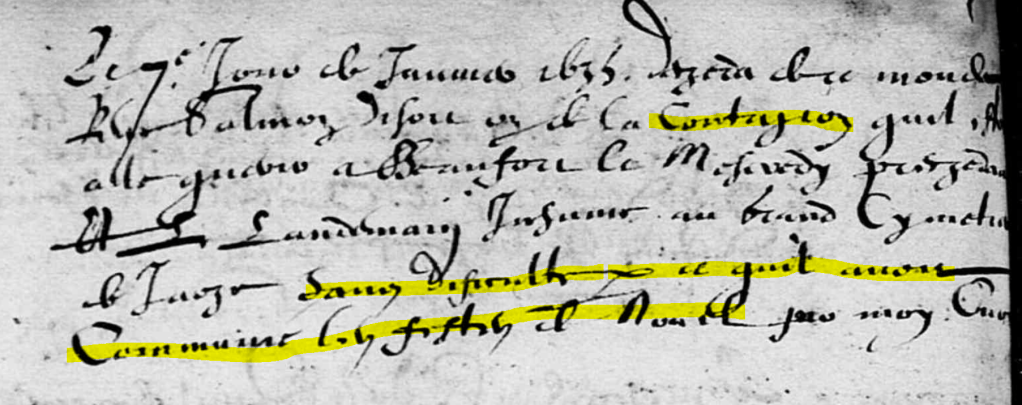 Le 7e Jour de Janvier 1635. deceda de ce monde
Salmon disoit on de la Contagion quil
alle querir a Beaufort le Mescredy precedan
Et L Landemain Inhumé au grand Cymetie
de Jarzé sans dificulté p ce quil avoit
Communié les festes de Nouel par moy Curé